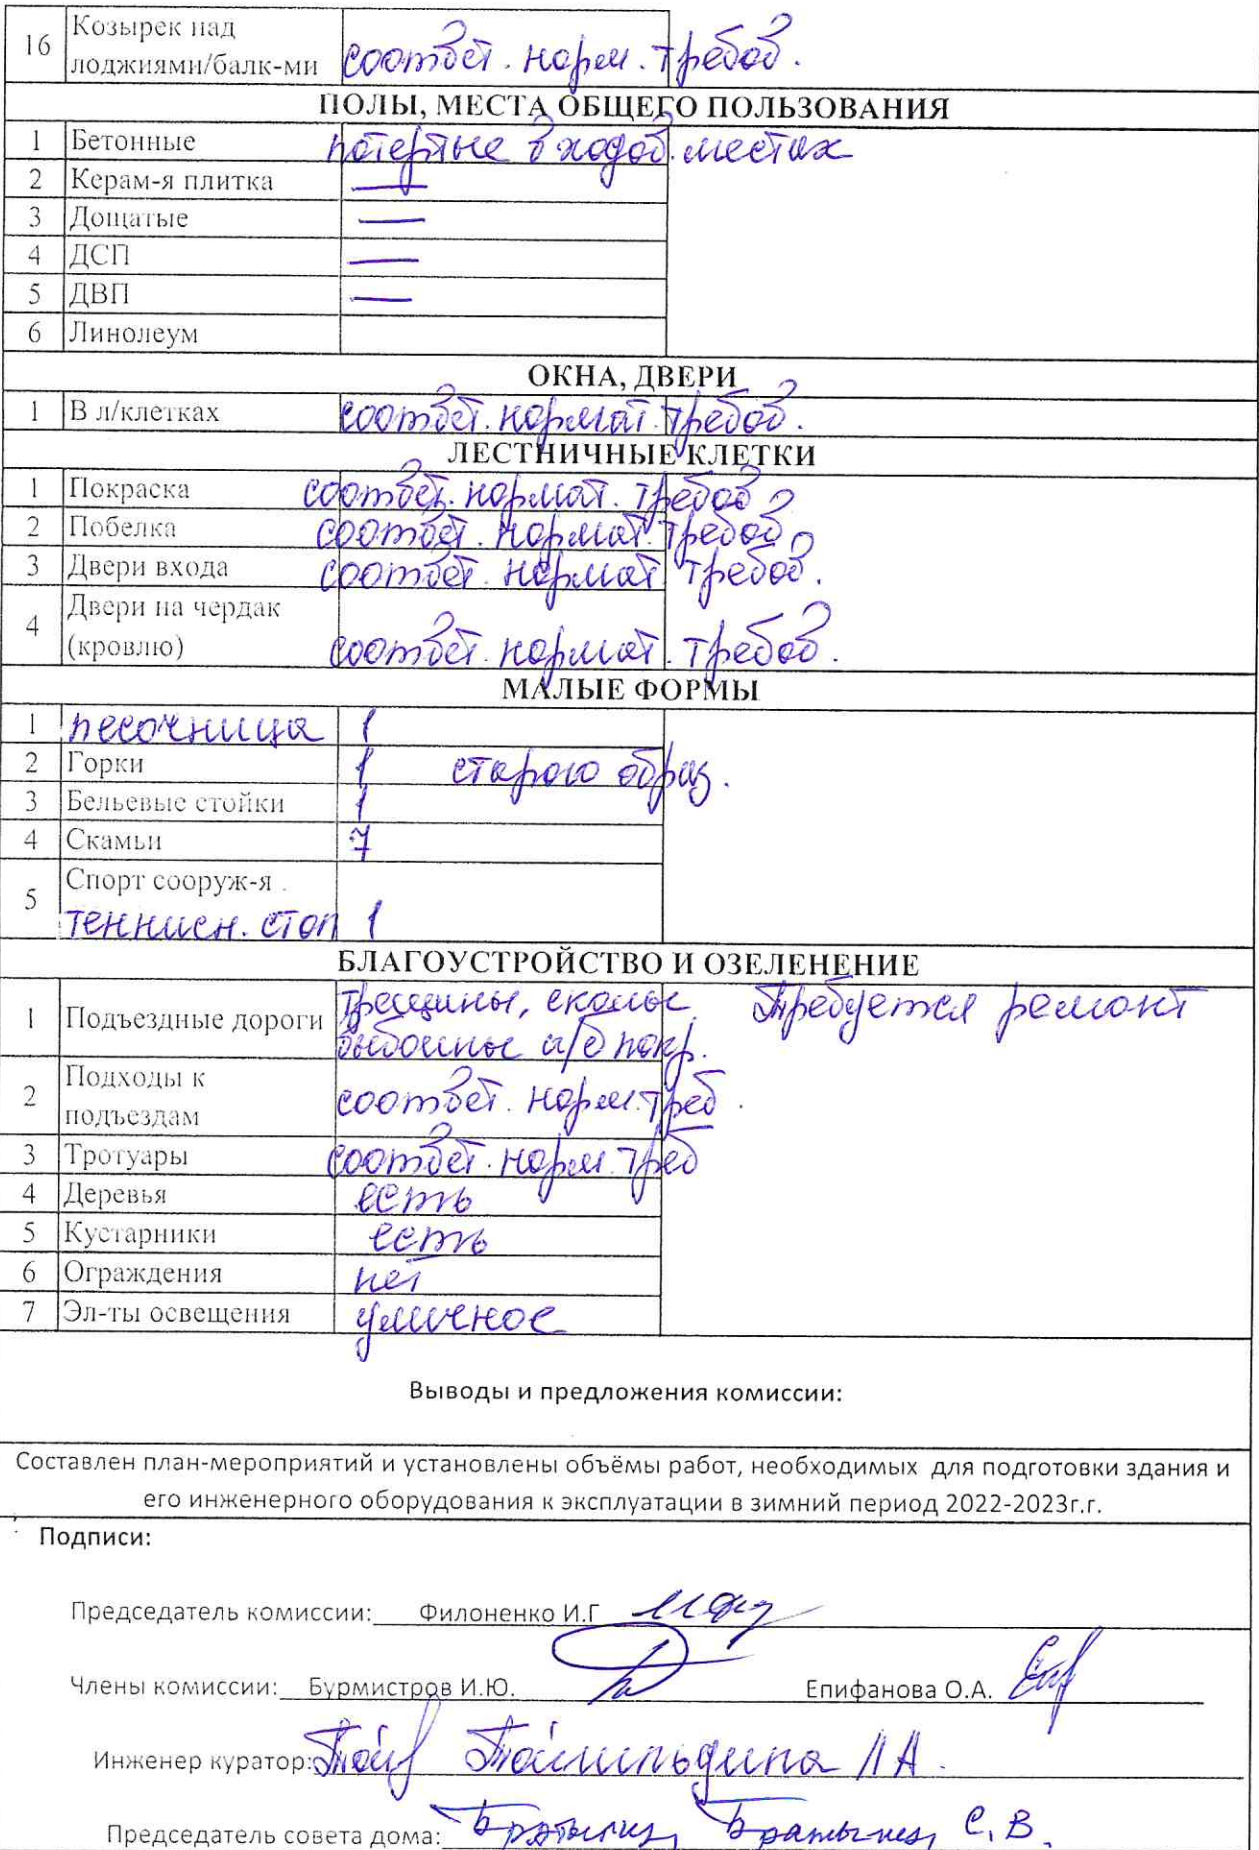 16 Козырек над
лоджиями/балк-ми соответ. норм. требов.
ПОЛЫ, МЕСТА ОБЩЕГО ПОЛЬЗОВАНИЯ
1 Бетонные потертые в ходов. местах
2 Керам-я плитка —
3 Дощатые —
4 ДСП —
5 ДВП —
6 Линолеум
ОКНА, ДВЕРИ
1 В л/клетках соответ. нормат. требов.
ЛЕСТНИЧНЫЕ КЛЕТКИ
1 Покраска соответ. нормат. требов
2 Побелка соответ. нормат. требов
3 Двери входа соответ. нормат. требов.
4 Двери на чердак
(кровлю) соответ. нормат. требов.
МАЛЫЕ ФОРМЫ
1 песочница 1
2 Горки 1 старого образ.
3 Бельевые стойки 1
4 Скамьи 7
5 Спорт сооруж-я .
теннисн. стол 1
БЛАГОУСТРОЙСТВО И ОЗЕЛЕНЕНИЕ
1 Подъездные дороги трещины, сколы Требуется ремонт
выбоины а/б покр.
2 Подходы к
подъездам соответ. норм. треб.
3 Тротуары соответ. норм. треб
4 Деревья есть
5 Кустарники есть
6 Ограждения нет
7 Эл-ты освещения уличное
Выводы и предложения комиссии:
Составлен план-мероприятий и установлены объёмы работ, необходимых для подготовки здания и
его инженерного оборудования к эксплуатации в зимний период 2022-2023г.г.
Подписи:
Председатель комиссии: Филоненко И.Г
Члены комиссии: Бурмистров И.Ю. Епифанова О.А.
Инженер куратор: Л А.
Председатель совета дома: С. В.